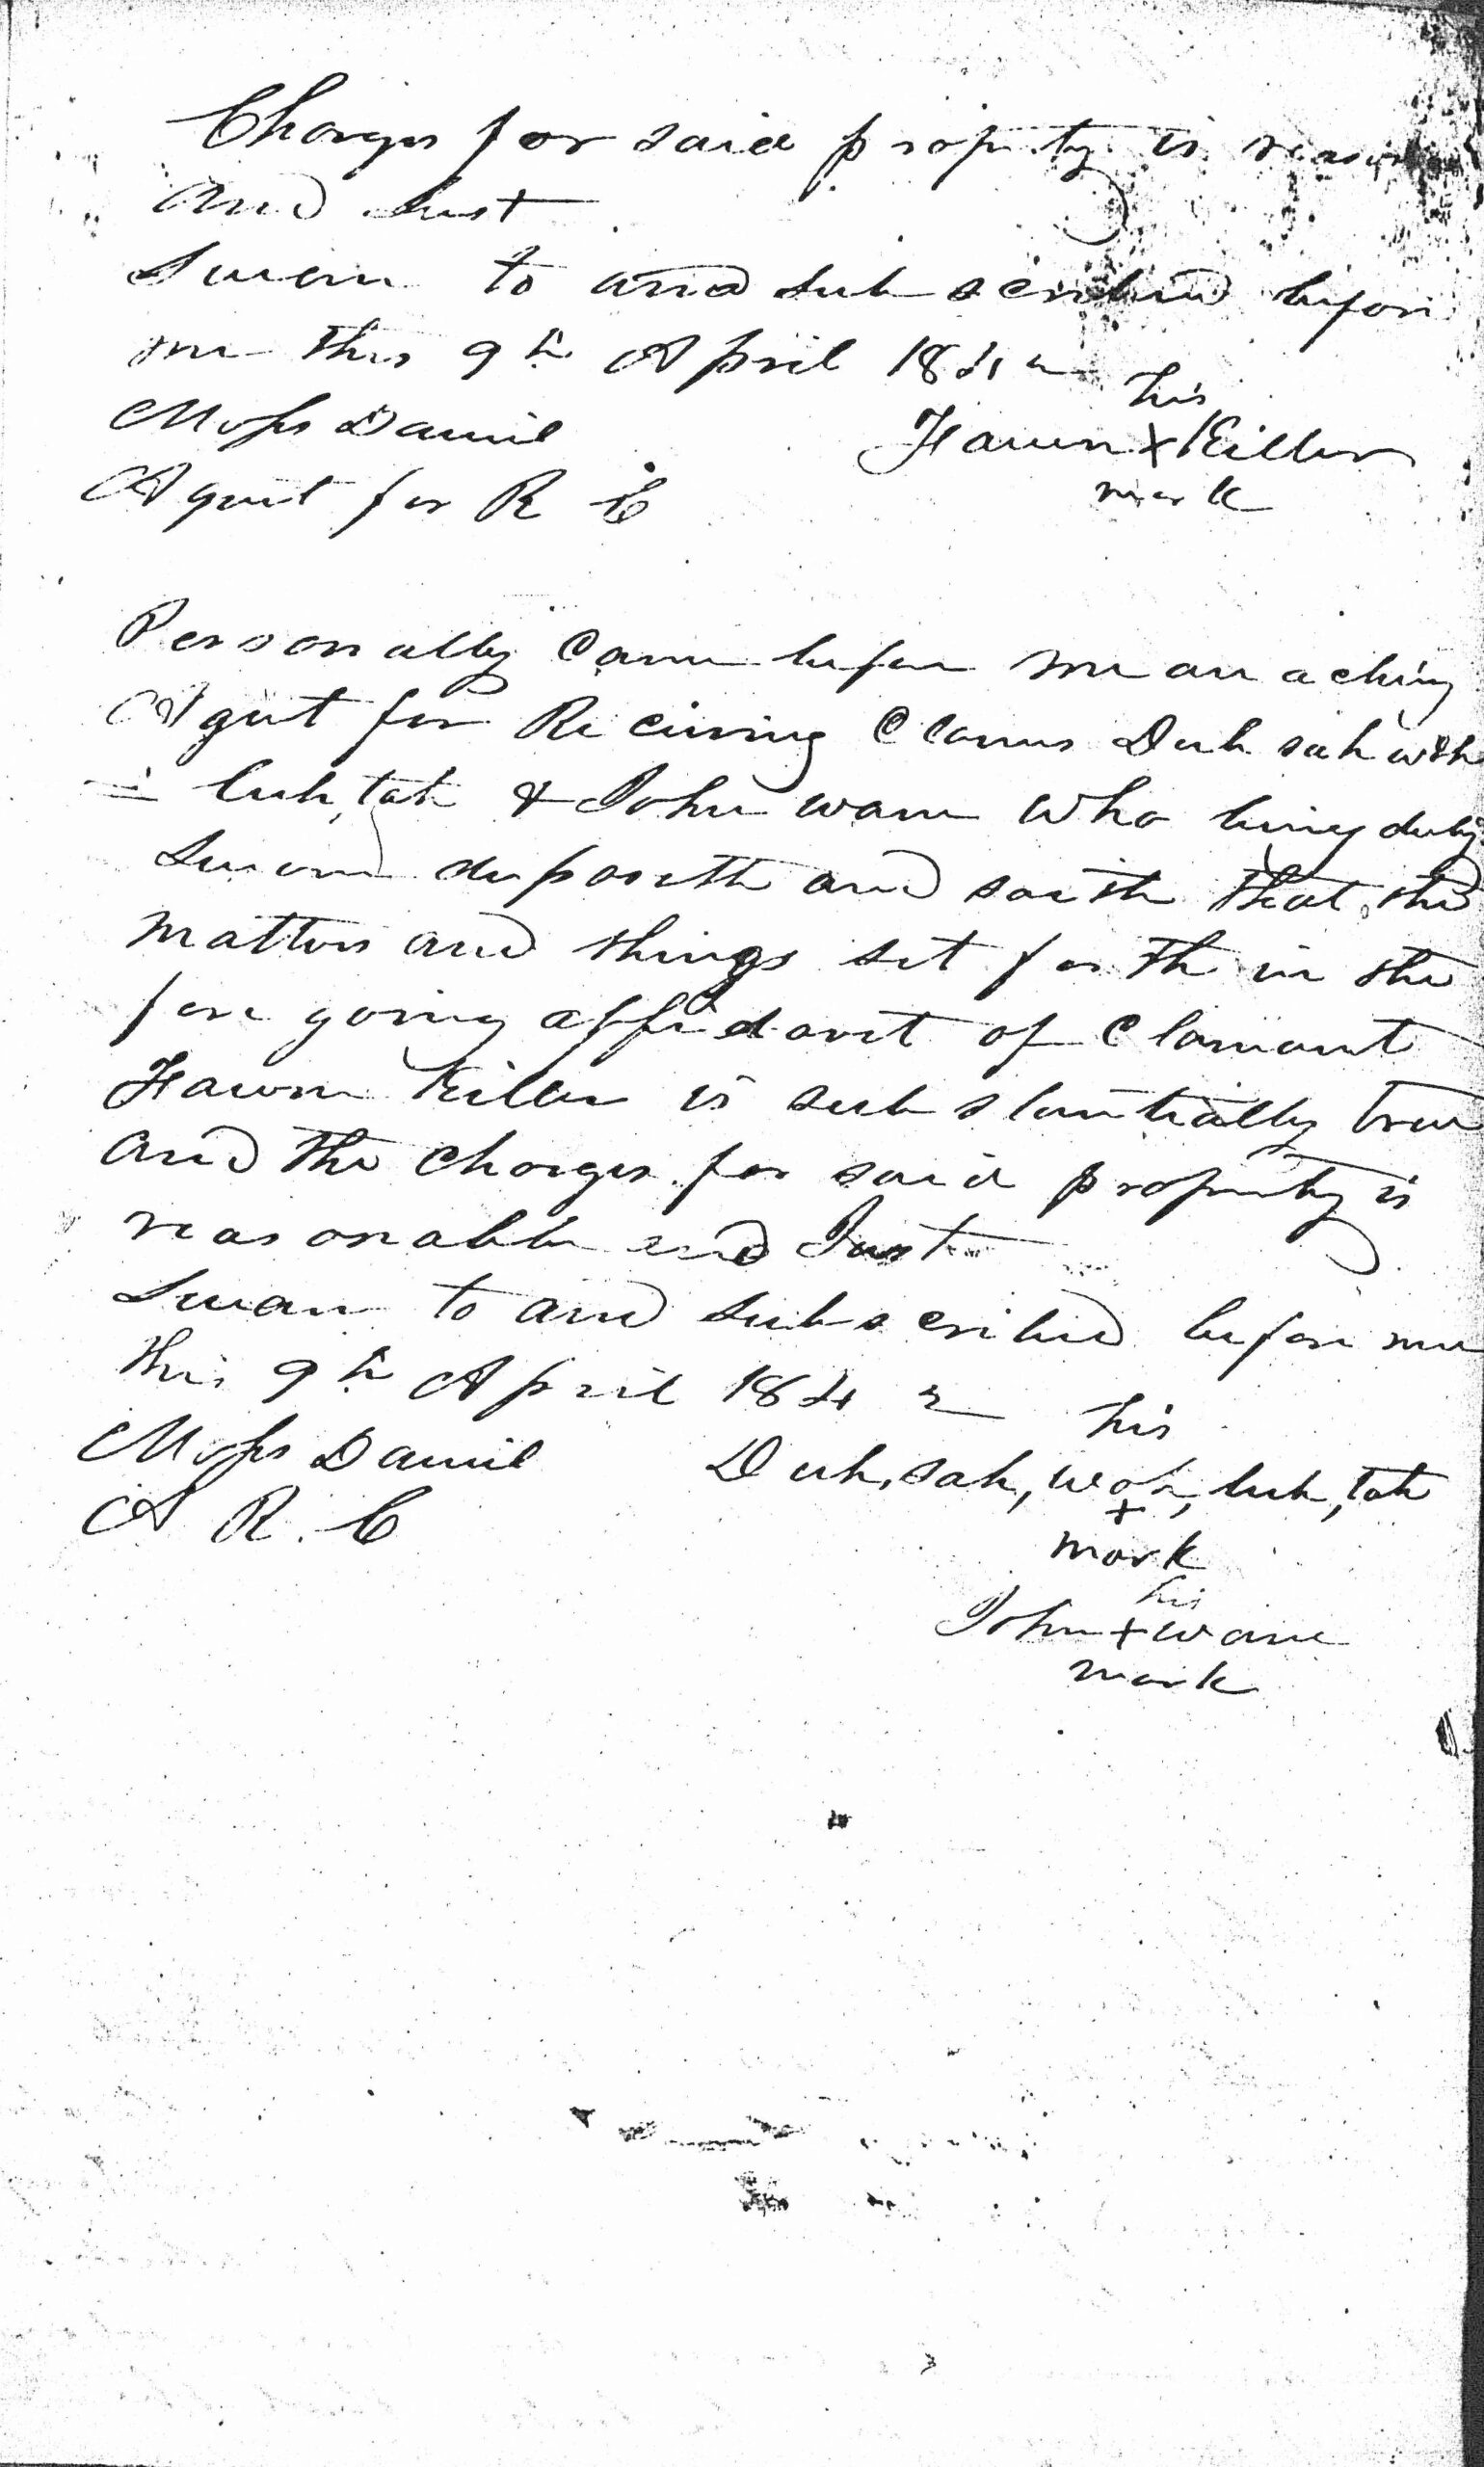 Charges for said property is reason
and Just
Sworn to and subscribed before
me this 9th April 1842
his
Moses Daniel Fawn X Killer
mark
Agent for R C
Personally came before me an acting
Agent for Receiving Claims Duh sah woh
luh, tah & John wane who being duly
Sworn deposeth and saith that the
matters and things set forth in the
fore going affidavit of Claimant
Fawn Killer is substantially true
and the charges for said property is
reasonable and Just
Sworn to and subscribed before me
this 9th April 1842
his
Moses Daniel Duh, sah, woh, luh, tah
A R. C
+
mark
his
John + wane
mark